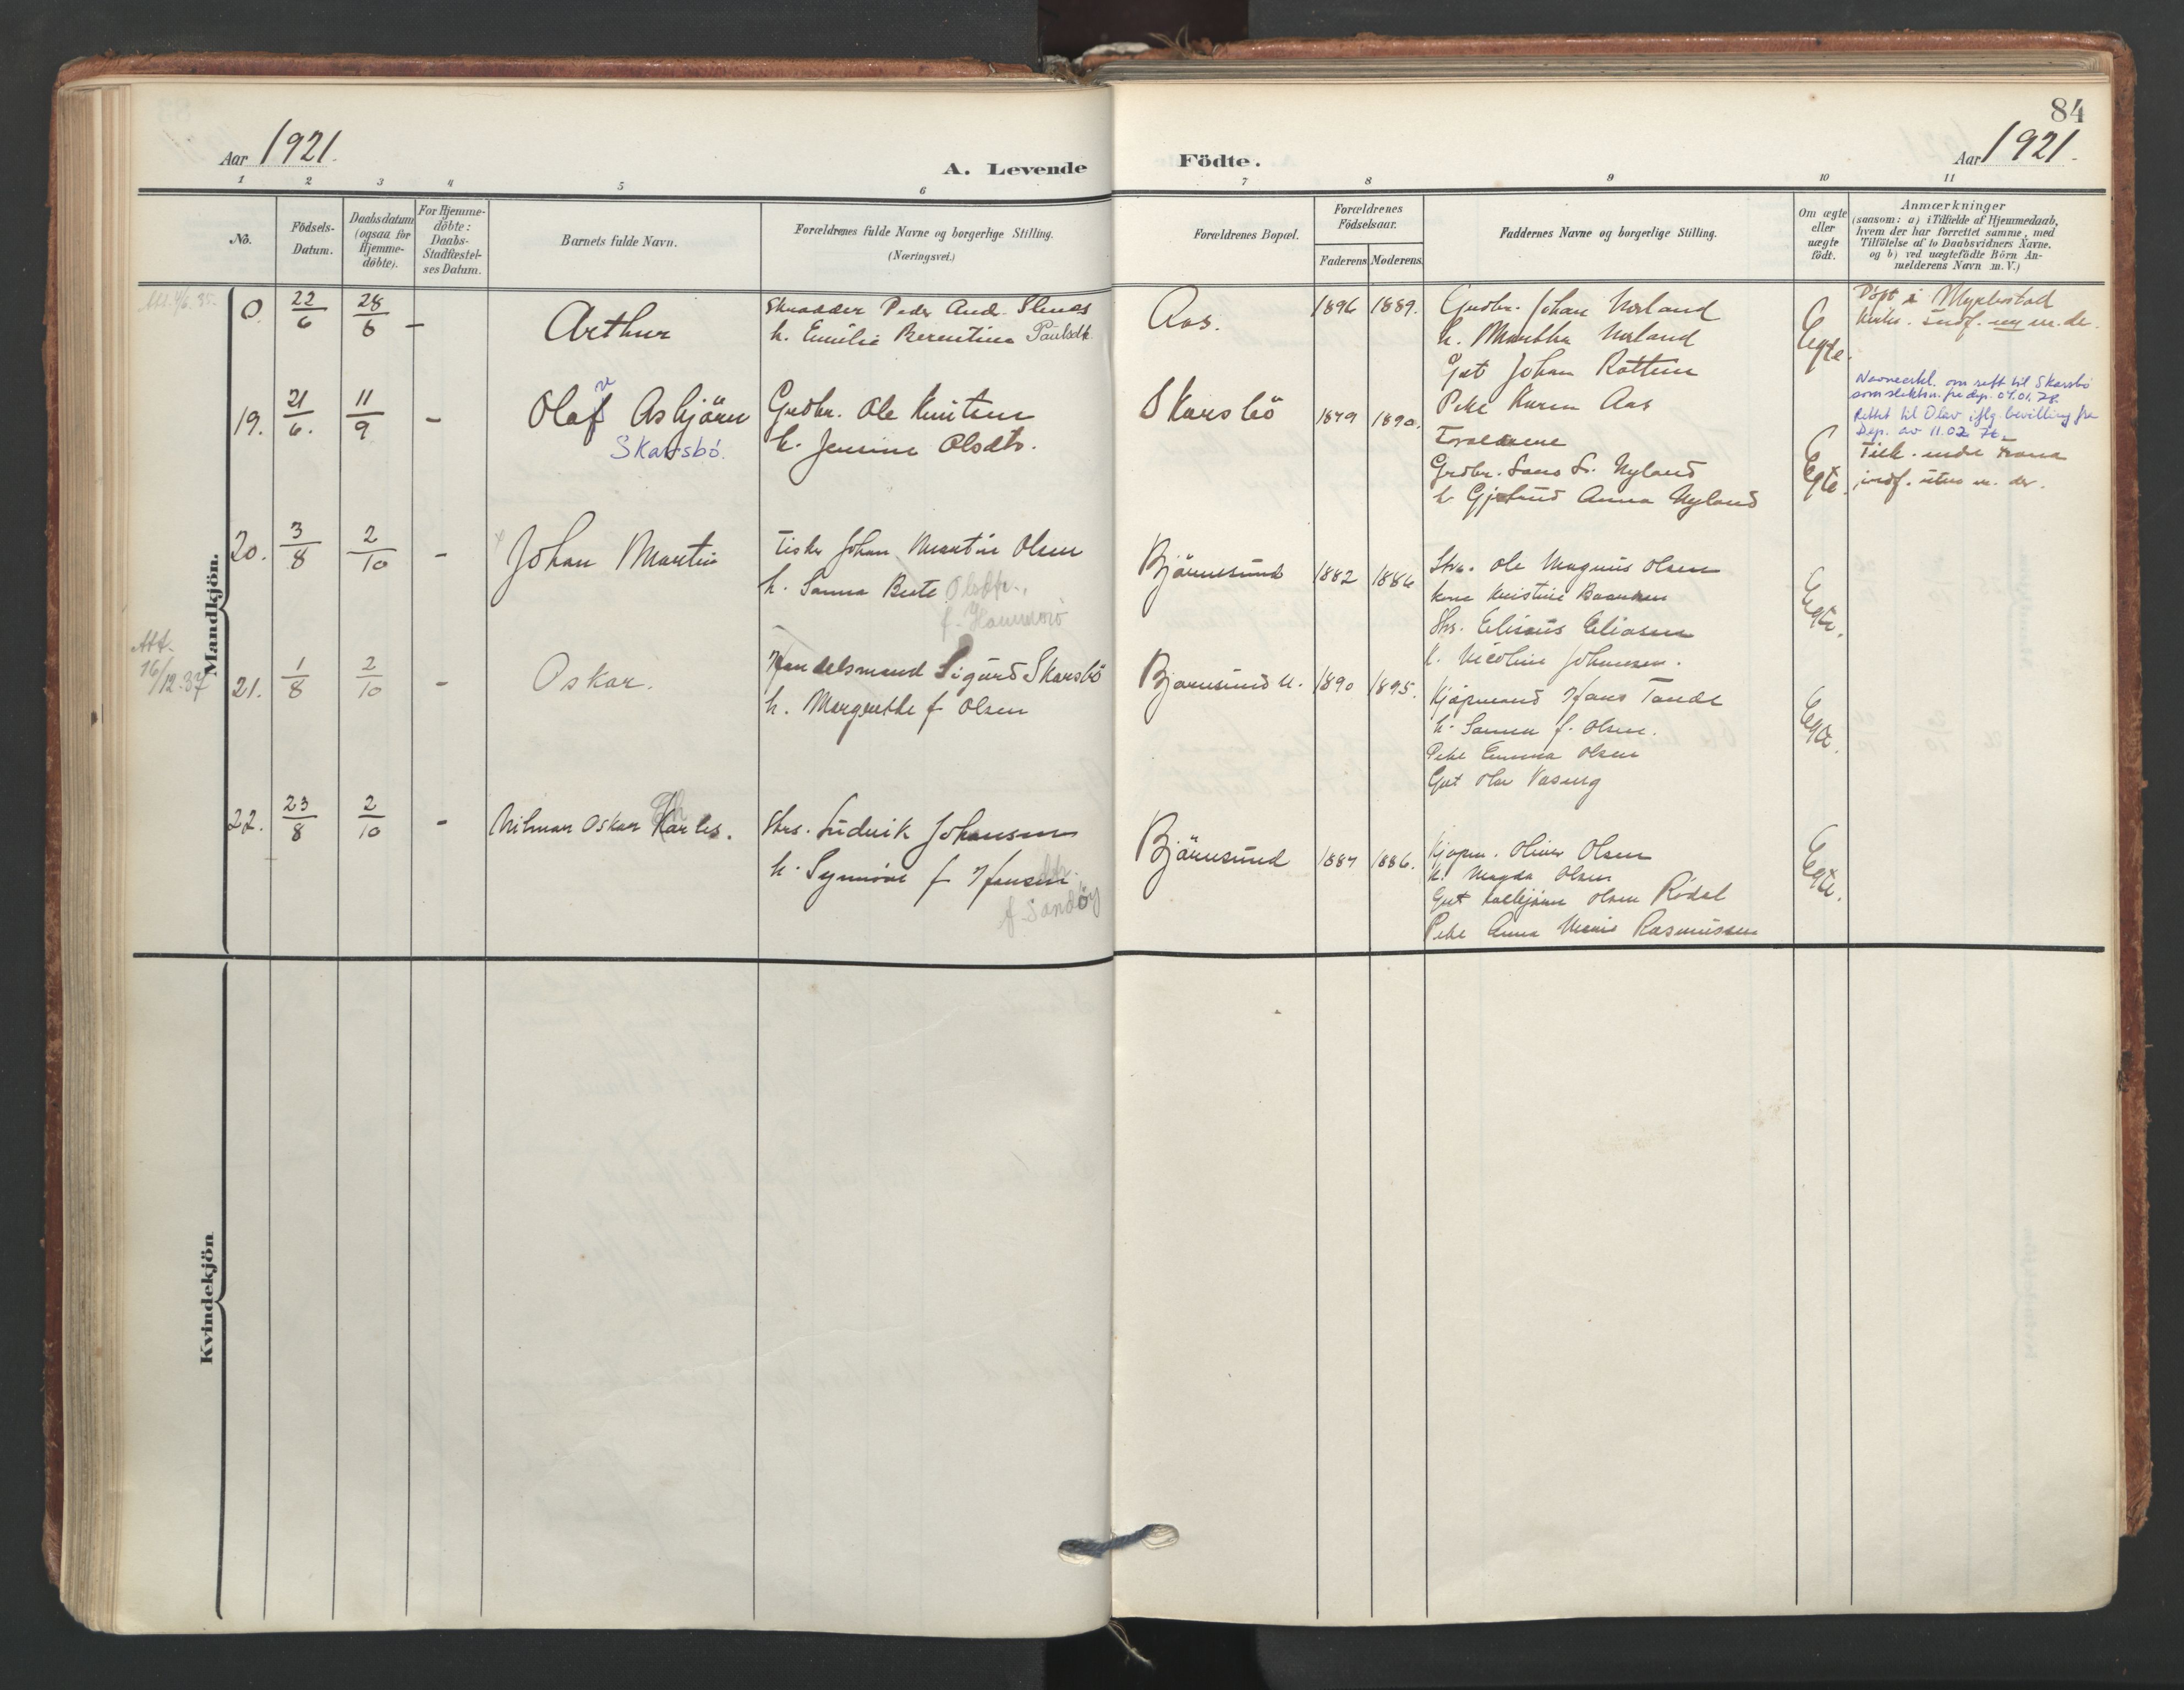 84
Aar 1921.
A. Levende
Födte.
Aar 1921.
1 2 3 4 5 6 7 8 9 10 11
No.
Födsels-
Datum.
Daabsdatum
(ogsaa for
Hjemme-
döbte).
For Hjemme-
döbte:
Daabs-
Stadfæstel-
ses Datum.
Barnets fulde Navn.
Forældrenes fulde Navne og borgerlige Stilling.
(Næringsvei.)
Forældrenes Bopæl.
Forældrenes
Födselsaar.
Faderens. Moderens.
Faddernes Navne og borgerlige Stilling.
Om ægte
eller
uægte
födt.
Anmærkninger
(saasom: a) i Tilfælde af Hjemmedaab,
hvem der har forrettet samme, med
Tilföielse af to Daabsvidners Navne.
og b) ved uægtefödte Börn An-
melderens Navn m. V.)
Mandkjön.
0. 22/6 28/6 - Arthur
Skradder Peder And.
k. Emilie Berentine Paulsdtr.
Aas. 1896 1889.
Grdbr. Johan Norland
k. Martha Norland
Gut Johan Rottem
Pike Karen Aas
Egte.
Döpt i Myklestad
19. 21/6. 11/9 - Olaf v Asbjörn
Skarsbö.
Grdbr. Ole Knutsen
k. Jensine Olsdtr.
Skarsbö 1879 1890.
Forældrene
Grdbr. Lars L. Nyland
k Gjertrud Anna Nyland
Egte.
Navneerkl. om rett til Skarsbö
som slektsn. fra dep. 04.01.78.
Rettet til Olav iflg. bevilling fra
Dep. av 11.02
20. 3/8 2/10 - Johan Martin
Fisker Johan Martin Olsen
k. Sanna Berte Olsdtr.,
Björnesund 1882 1886
Strs. Ole Magnus Olsen
kone Kristine
Strs. Eliseus Eliasen
k. Nicoline Johansen.
Egte.
Att.
16/12.37
21. 1/8 2/10 - Oskar.
Handelsmand Sigurd Skarsbö
k. Margrethe f Olsen
Bjørnesund 1890 1895.
Kjøpmand Hans Tande
k. Sanna f. Olsen.
Pike Emma Olsen
Gut Olav
Egte.
22. 23/8 2/10 - Hilmar Oskar Karles.
Strs. Ludvik Johansen
k. Synnöve f Hansen
f. Sandöy
Björnesund 1887 1886.
Kjøpm. Oliver Olsen
k. Magda Olsen
Gut Olsen Rödal
Pike Anna Marie Rasmussen
Egte.
Kvindekjön